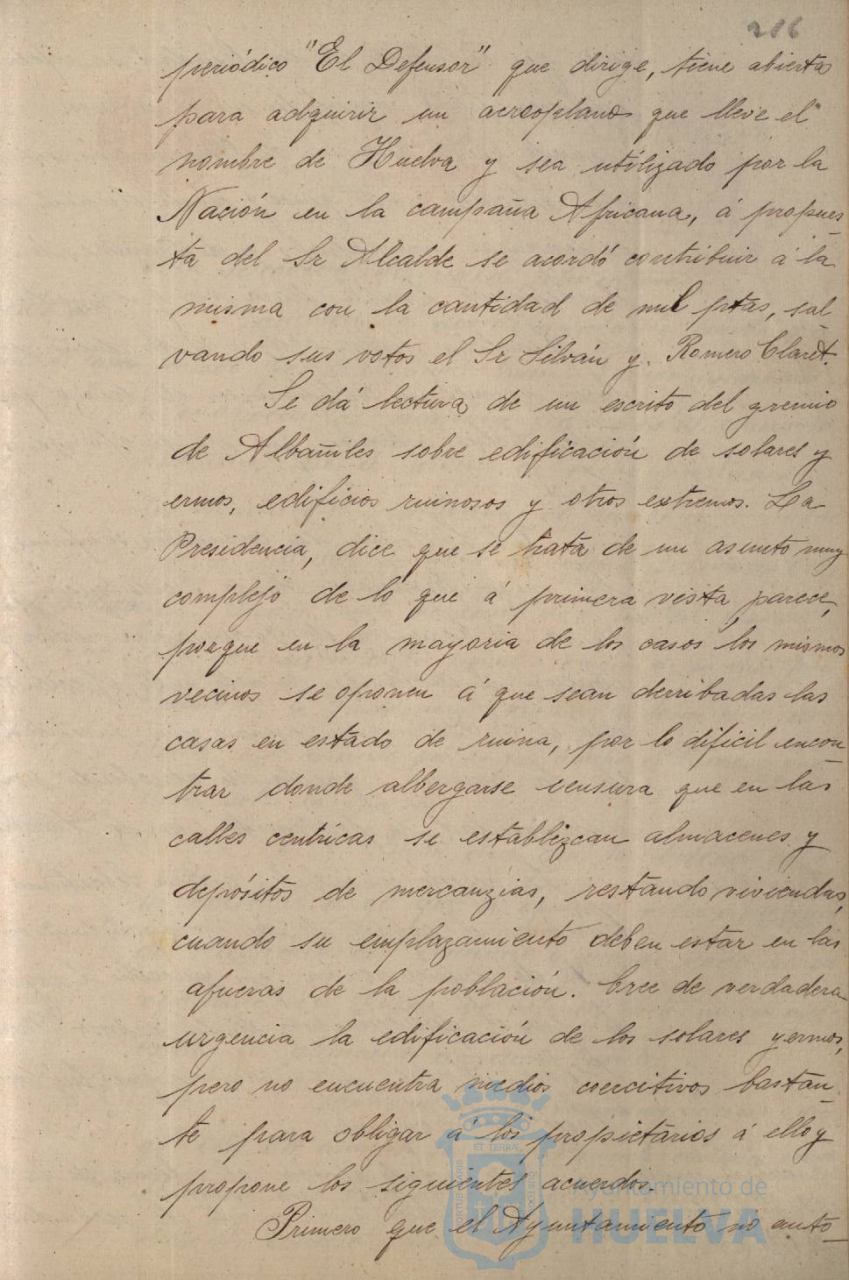 216
periódico "El Defensor" que dirige, tiene abierta
para adquirir un aereoplano que lleve el
nombre de Huelva y sea utilizado por la
Nación en la campaña Africana, á propues
ta del Sr Alcalde se acordó contribuir á la
misma con la cantidad de mil ptas, sal
vando sus votos el Sr Silván y Romero Claret.
Se dá lectura de un escrito del gremio
de Albañiles sobre edificación de solares y
ermos, edificios ruinosos y otros extremos. La
Presidencia, dice que se trata de un asunto muy
complejo de lo que á primera vista, parece,
porque en la mayoria de los casos los mismos
vecinos se oponen á que sean derribadas las
casas en estado de ruina, por lo dificil encon
trar donde albergarse censura que en las
calles centricas se establizcan almacenes y
depósitos de mercanzias, restando viviendas,
cuando su emplazamiento deben estar en las
afueras de la población. Cree de verdadera
urgencia la edificación de los solares yermos,
pero no encuentra medios coercitivos bastan-
te para obligar á los propietarios á ello y
propone los siguientes acuerdos.
Primero que el Ayuntamiento no auto-
Ayuntamiento de
HUELVA